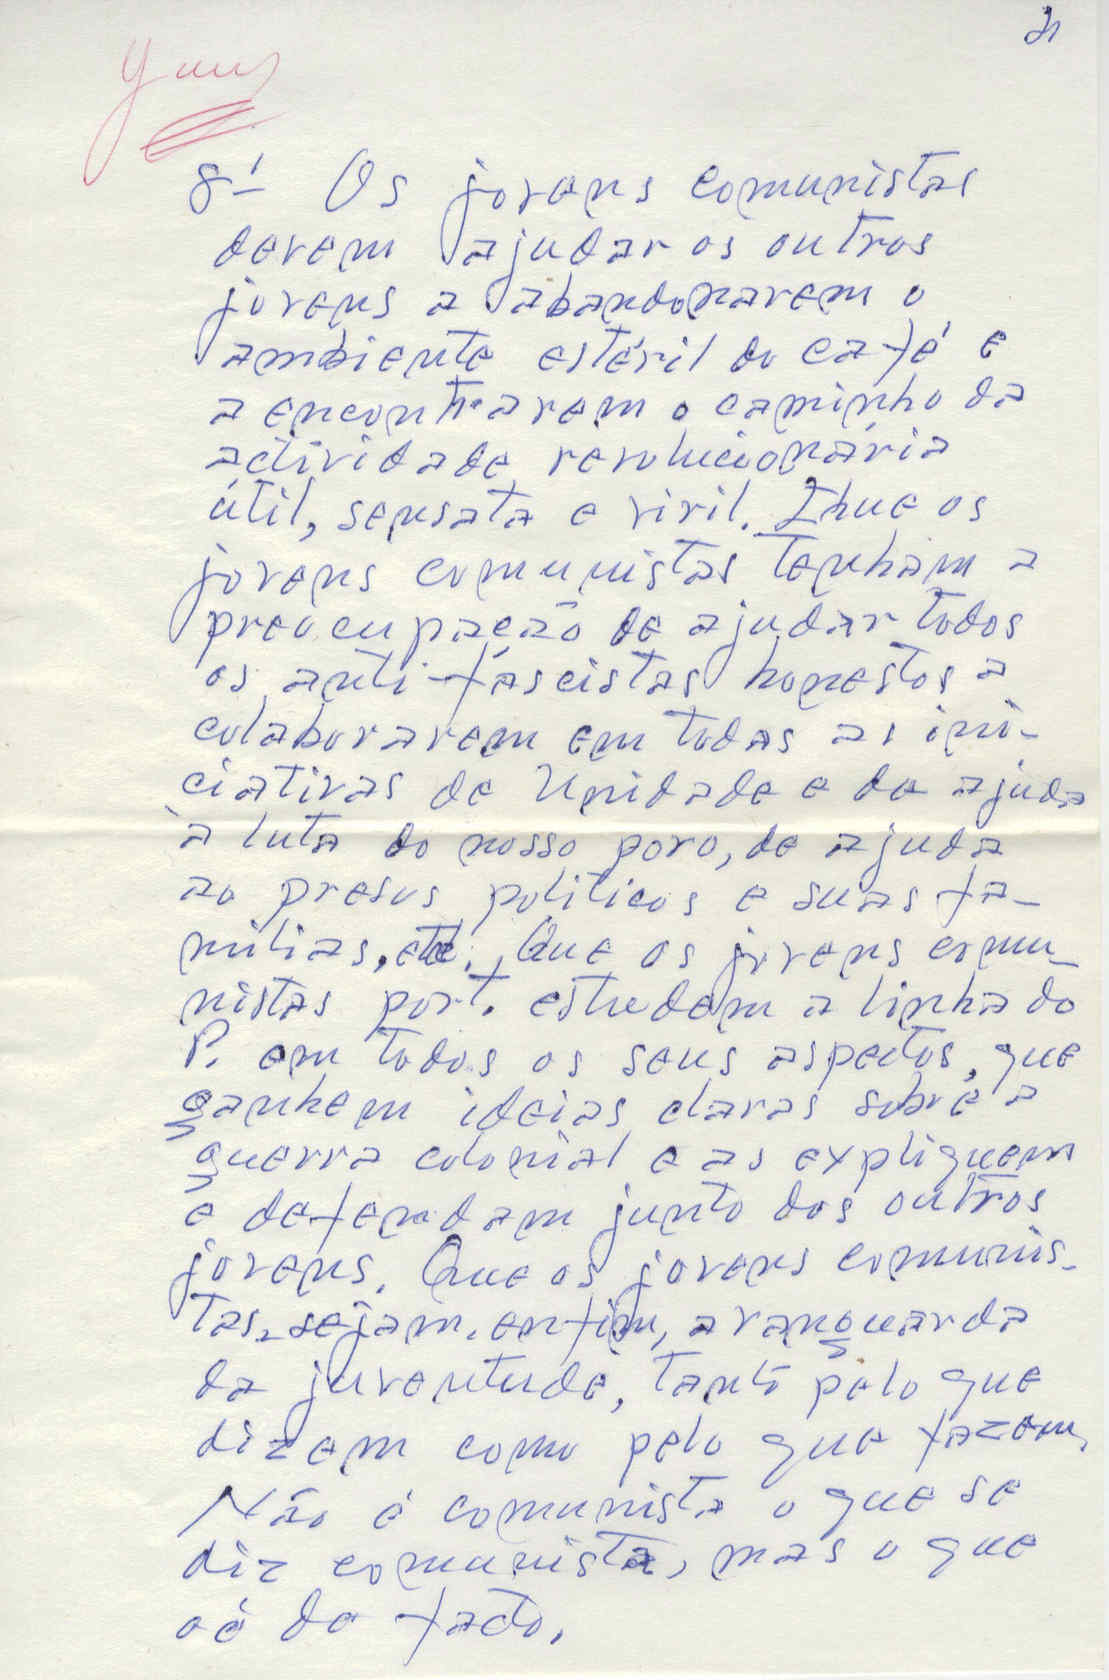 8ª Os jovens comunistas
devem ajudar os outros
jovens a abandonarem o
ambiente estéril do café e
a encontrarem o caminho da
actividade revolucionária
útil, sensata e viril. Que os
jovens comunistas tenham a
preocupação de ajudar todos
os anti-fascistas honestos a
colaborarem em todas as ini-
ciativas de Unidade e de ajuda
à luta do nosso povo, de ajuda
ao presos políticos e suas fa-
mílias, etc. Que os jovens comu-
nistas port. estudem a linha do
P. em todos os seus aspectos, que
ganhem ideias claras sobre a
guerra colonial e as expliquem
e defendam junto dos outros
jovens. Que os jovens comunis-
tas sejam, enfim, a vanguarda
da juventude, tanto pelo que
dizem como pelo que fazem.
Não é comunista o que se
diz comunista, mas o que
o é de facto.